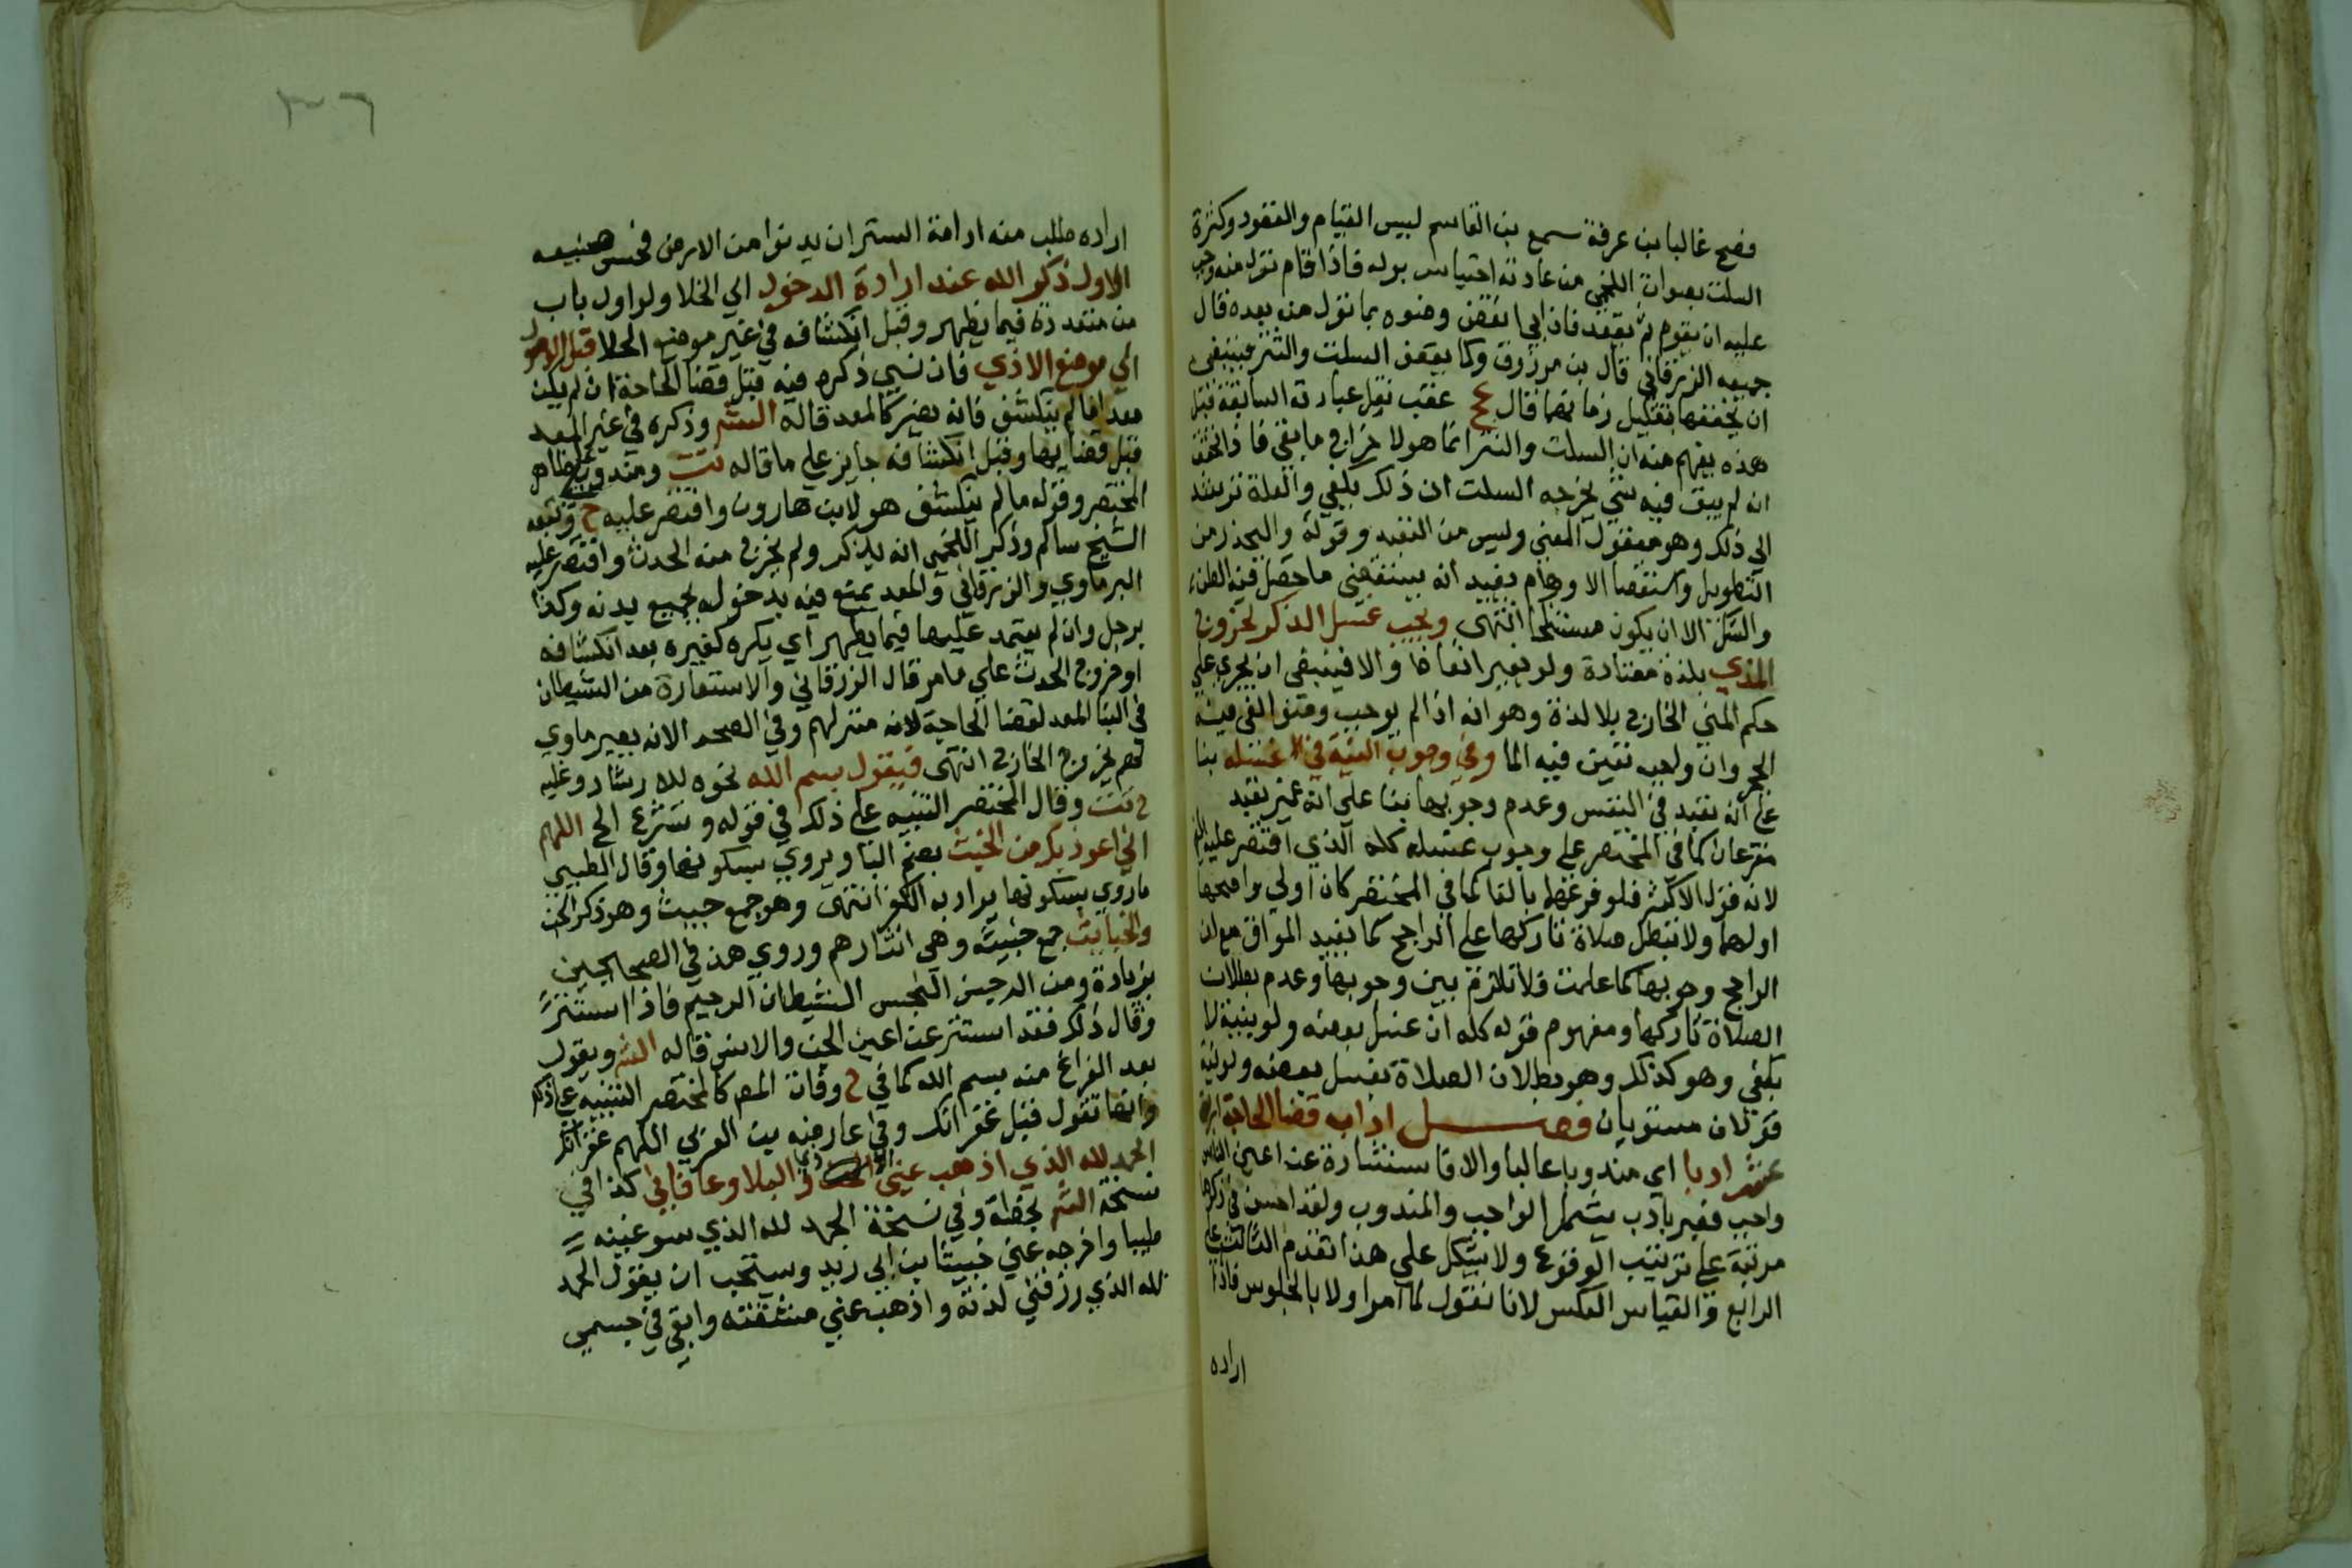 فصح غالبا بن عرفة سمع بن القاسم ليس القيام والقعود وكثرة
السلت بصواب اللخمي من عادته احتباس بوله فاذا قام نزل منه وجب
عليه ان يقوم ثم يقعد فان ابى نقض وضوه بما نزل منه بعده قال
جميعه الزرقاني قال بن مرزوق وكما يقعن السلت والنتر فينبغي
ان يخففها بتقليل زمانهما قال عج عقب نقل عبارته السابقة قبل
هذه يفهم منه ان السلت والنتر انما هو لاخراج ما بقي فاذا تحقق
ان لم يبق فيه شي يخرجه السلت ان ذلك يكفي والعلة ترشد
الي ذلك وهو معقول المعني وليس من التعبد وقوله واليحذر من
التطويل واستقصا الاوهام يفيد انه يستقصي ما حصل فيه الظن
والشك الا ان يكون مستنكحا انتهى ويجب غسل الذكر لخروج
المذي بلذة معتادة ولو بغير انعاظ والا فينبغي ان يجري علي
حكم المني الخارج بلا لذة وهو انه اذا لم يوجب وضوا كفى فيه
الحجر وان وجب تعين فيه الما وفي وجوب النية في غسله بنا
علي انه تعبد في النفس وعدم وجوبها بنا علي انه غير تعبد
متفرعان كما في المختصر علي وجوب غسله كله الذي اقتصر عليه
لانه قول الاكثر فلو فرعهما بالفا كما في المختصر كان اولي واصحها
اولهما ولا تبطل صلاة تاركها علي الراجح كما يفيد المواق مع ان
الراجح وجوبها كما علمت فلا تلازم بين وجوبها وعدم بطلان
الصلاة تاركها ومفهوم قوله كله ان غسل بعضه ولو بنية لا
يكفي وهو كذلك وهو بطلان الصلاة بغسل بعضه ولو بنية
قولان مستويان فصل اداب قضا الحاجة
عشر ادبا اي مندوبا غالبا والا فاستتاره عن اعين الناس
واجب فغير بادب يشمل الواجب والمندوب ولقد احسن في ذكرها
مرتبة علي ترتيب الوقوع ولا يشكل علي هذا تقدم الثالث علي
الرابع والقياس العكس لانا نقول لما امر اولا بالجلوس فاذا
اراده
٣٦
اراده طلب منه ادامة الستر ان يدنوا من الارض فحسن صنيعه
الاول ذكر الله عند ارادة الدخول الي الخلا ولو اول باب
من متعددة فيما يظهر وقبل انكشافه في غير موضع الخلا قبل الوصول
الي موضع الاذي فان نسي ذكره فيه قبل قضا الحاجة ان لم يكن
معد اما لم ينكشف فانه يصير كالمعد قاله الشر وذكره في غير المعد
قبل قضايها وقبل انكشافه جايز علي ما قاله تت ومندوب علي ظاهر
المختصر وقوله ما لم ينكشف هو لابن هارون واقتصر عليه ح وتبعه
الشيخ سالم وذكر اللخمي انه يذكر ولم يخرج منه الحدث واقتصر عليه
البرماوي والزرقاني والمعد يمنع فيه بدخوله بجميع بدنه وكذا
برجل وان لم يعتمد عليها فيما يظهر اي يكره كغيره بعد انكشافه
او خروج الحدث علي ما مر قال الزرقاني والاستعاذة من الشيطان
في البنا المعد لقضا الحاجة لانه منزلهم وفي الصحر الانه يصير ماوي
لهم بخروج الخارج انتهى فيقول بسم الله نحوه للارشاد وعليه
ح تت وقال المختصر التنبيه علي ذلك في قوله وتشرع الخ اللهم
اني اعوذ بك من الخبث بضم البا ويروي بسكونها وقال الطيبي
ما روي بسكونها يراد به الكفر انتهى وهو جمع خبيث وهو ذكر الجن
والخبايث جمع خبيثة وهي اناثهم وروي هذا في الصحيحين
بزيادة ومن الرجس النجس الشيطان الرجيم فاذا استتر
وقال ذلك فقد استتر عن اعين الجن والانس قاله الشر ويقول
بعد الفراغ منه بسم الله كما في ح وفات المصر كالمختصر التنبيه علي ذلك
وانها تقول قبل غفرانك وفي عارضه بن العربي اللهم غفرانك
الحمد لله الذي اذهب عني البلا وعافاني كذا في
نسخة الشر بخطه وفي نسخة الحمد لله الذي سوغنيه
طيبا واخرجه عني خبيثا بن ابي زيد ويستحب ان يقول الحمد
لله الذي رزقني لذته واذهب عني مشقته وابقى في جسمي